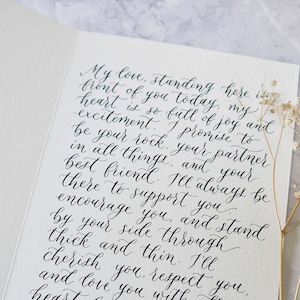 My love, standing here in
front of you today, my
heart is so full of joy and
excitement. I promise to
be your rock, your partner
in all things, and your
best friend. I'll always be
there to support you,
encourage you, and stand
by your side through
thick and thin. I'll
cherish you, respect you,
and love you with